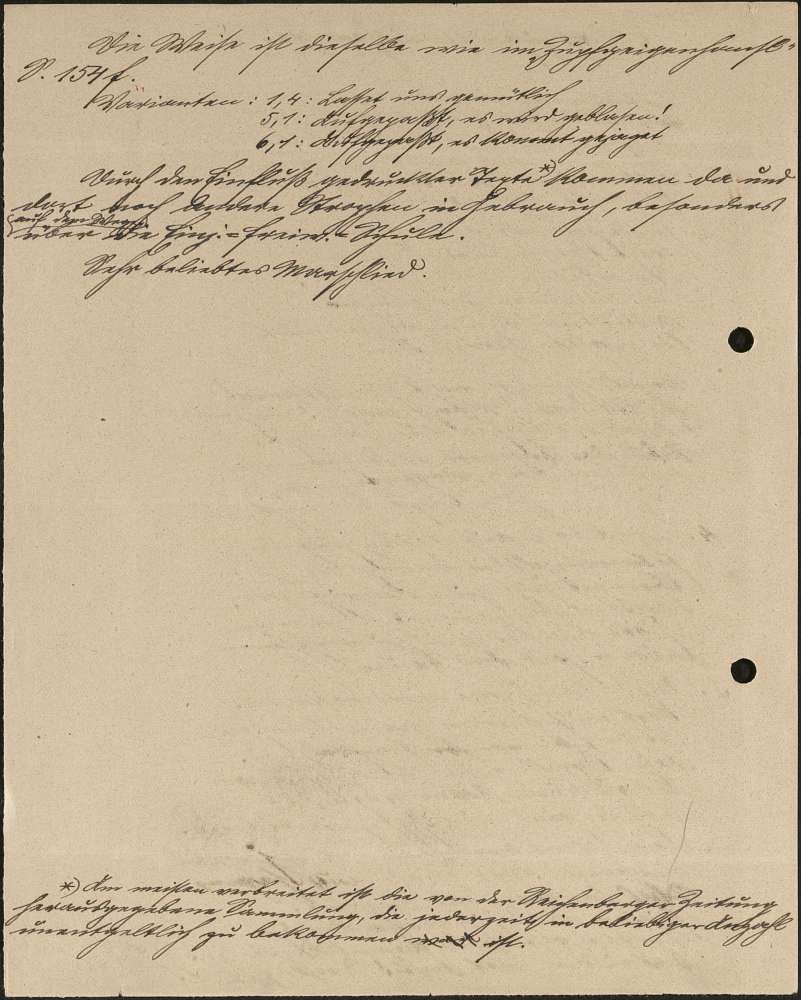 Die Weise ist dieselbe wie im „Zupfgeigenhansl“
S. 154 f.
Varianten: 1,4: Lasset uns gemütlich
5,1: Aufgepaßt, es wird geblasen!
6,1: Aufgepaßt, es kommt gejaget
Durch den Einfluß gedruckter Texte *) kommen da und
dort noch andere Strophen in Gebrauch, besonders
auf dem Wege
über die Einj.-Freiw.-Schule.
Sehr beliebtes Marschlied.
*) Am meisten verbreitet ist die von der Reichenberger Zeitung
herausgegebene Sammlung, die jederzeit in beliebiger Anzahl
unentgeltlich zu bekommen ist.